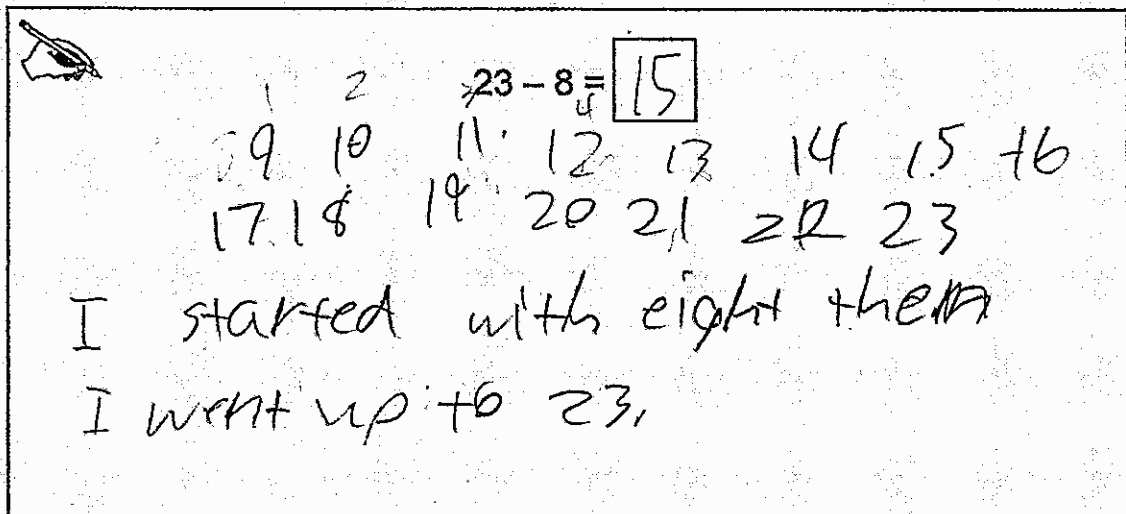 23 – 8 = 15
1 2 3 4
9 10 11 12 13 14 15 16
17 18 19 20 21 22 23
I started with eight then
I went up to 23.